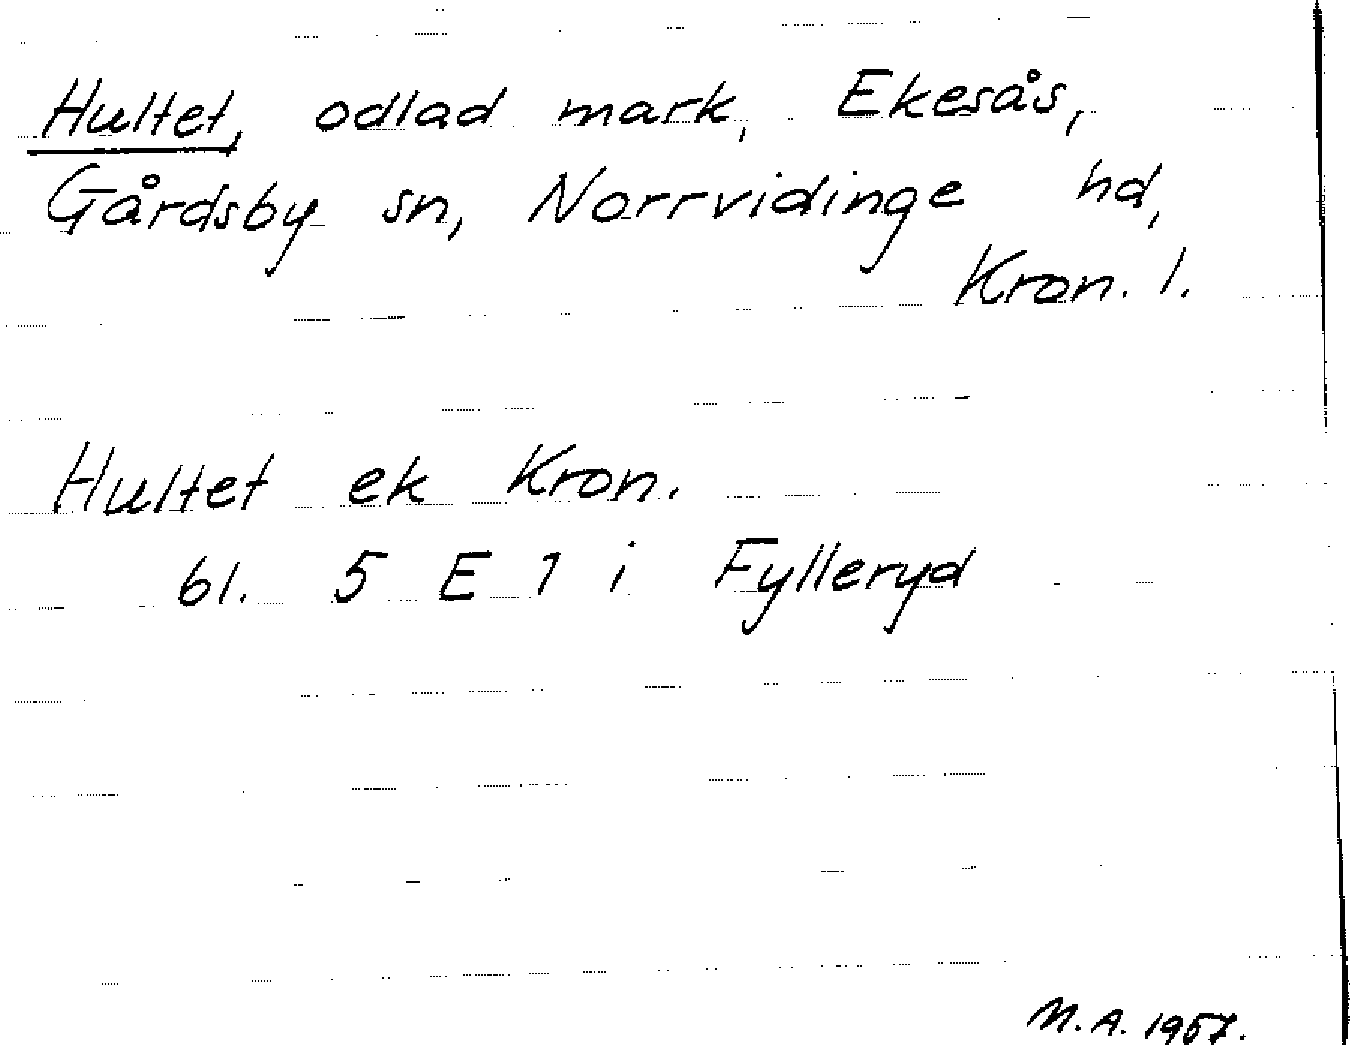 Hultet, odlad mark, Ekesås,
Gårdsby sn, Norrvidinge hd,
Kron. l.
Hultet ek Kron.
bl. 5 E 1 i Fylleryd
M.A. 1957.